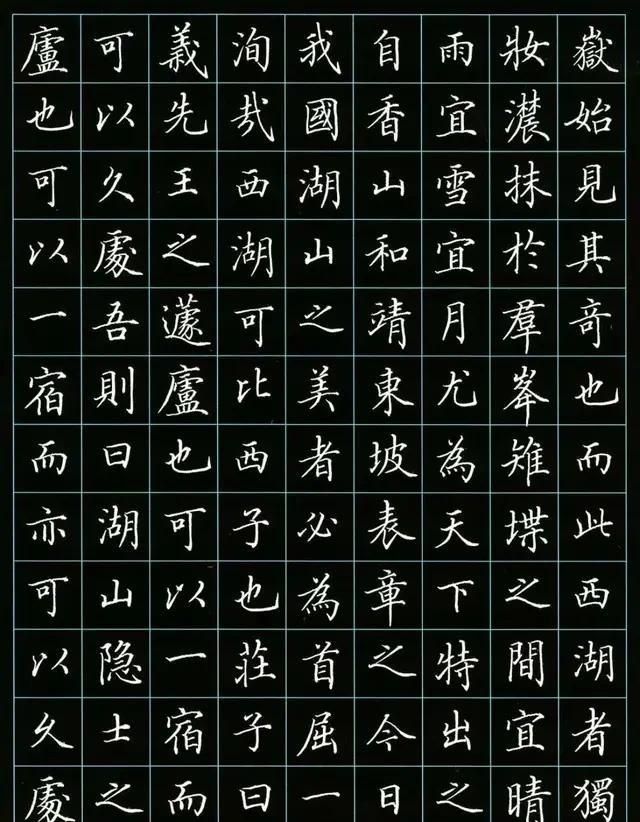 嶽始見其奇也而此西湖者獨
妝濃抹於羣峯雉堞之間宜晴
雨宜雪宜月尤為天下特出之
自香山和靖東坡表章之今日
我國湖山之美者必為首屈一
洵哉西湖可比西子也莊子曰
義先王之蘧廬也可以一宿而
可以久處吾則曰湖山隐士之
廬也可以一宿而亦可以久處